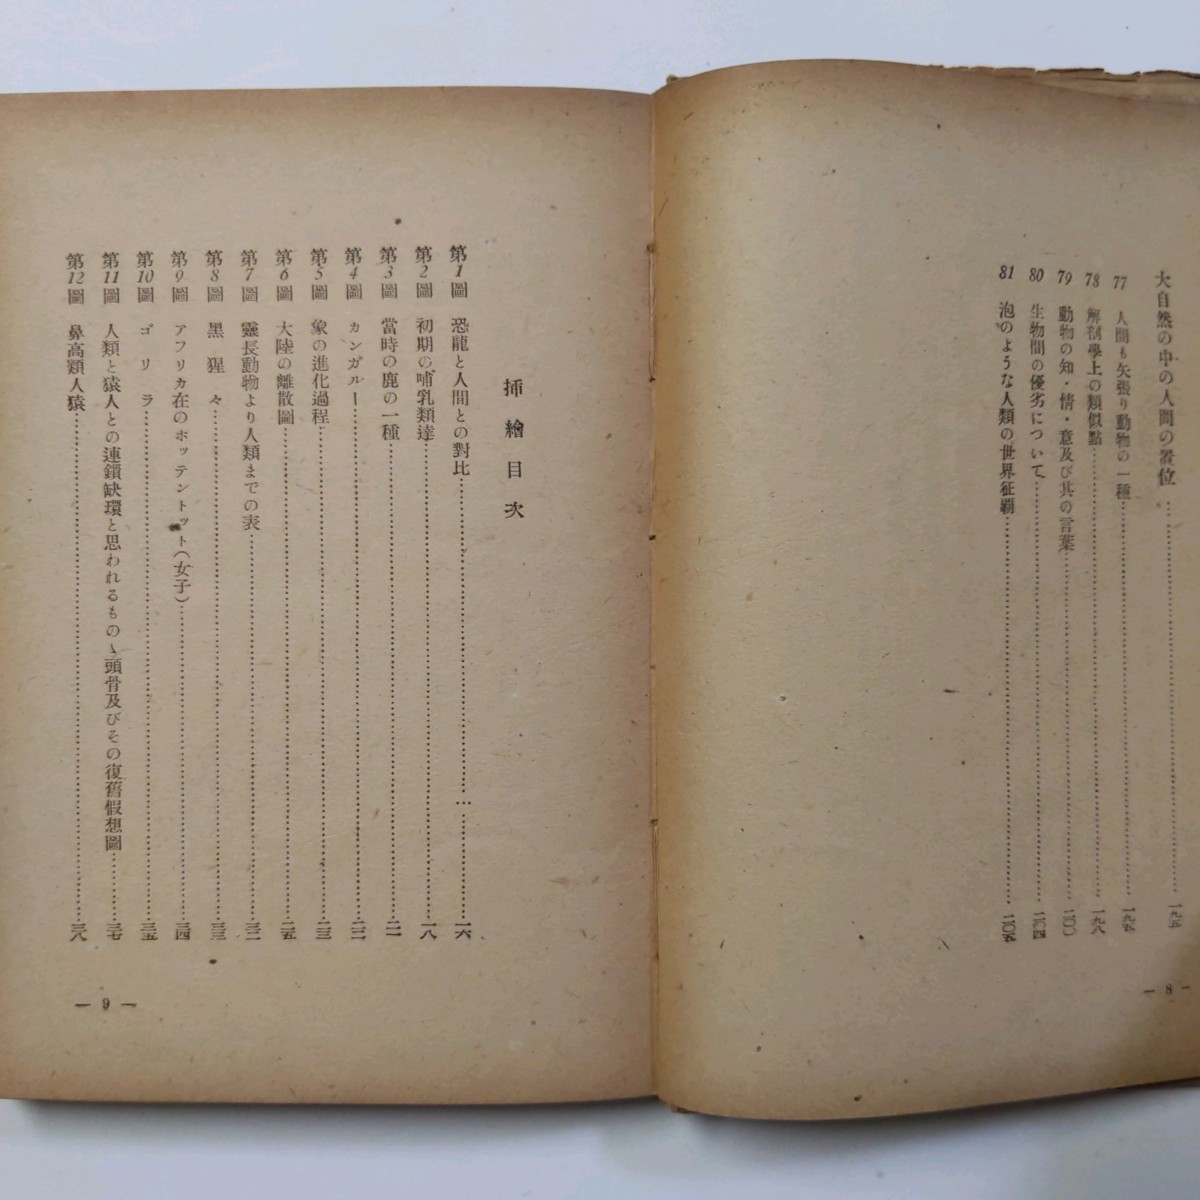 大自然の中の人間の置位……一九五
77 人間も矢張り動物の一種……一九五
78 解剖學上の類似點……一九八
79 動物の知・情・意及び其の言葉……二〇〇
80 生物間の優劣について……二〇四
81 泡のような人類の世界征覇……二〇五
— 8 —
挿繪目次
第1圖 恐龍と人間との對比……一六
第2圖 初期の哺乳類達……一八
第3圖 當時の鹿の一種……二一
第4圖 カンガルー……二二
第5圖 象の進化過程……二三
第6圖 大陸の離散圖……二五
第7圖 靈長動物より人類までの表……三二
第8圖 黑猩々……三三
第9圖 アフリカ在のホッテントット(女子)……三四
第10圖 ゴリラ……三五
第11圖 人類と猿人との連鎖缺環と思われるものゝ頭骨及びその復舊假想圖……三七
第12圖 鼻高類人猿……三八
— 9 —